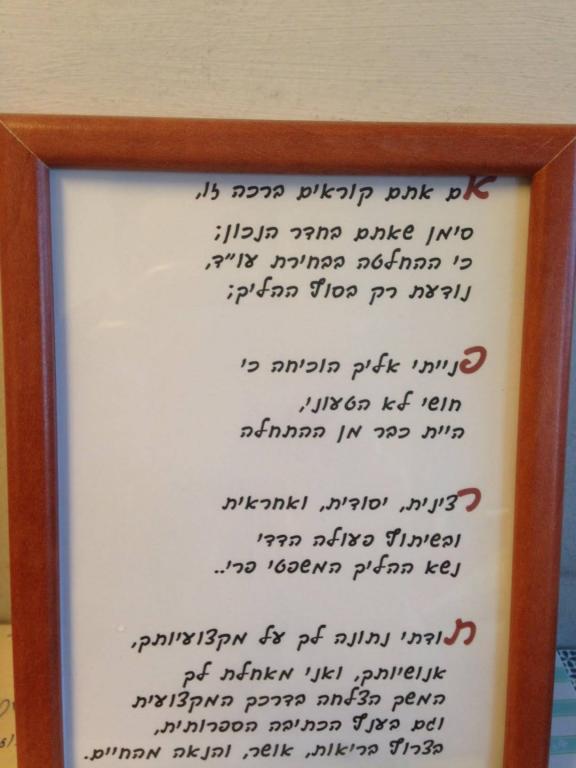 אם אתם קוראים ברכה זו,
סימן שאתם בחדר הנכון;
כי ההחלטה בבחירת עו"ד,
נודעת רק בסוף ההליך;
פנייתי אליך הוכיחה כי
חושי לא הטעוני,
היית כבר מן ההתחלה
רצינית, יסודית, ואחראית
ובשיתוף פעולה הדדי
נשא ההליך המשפטי פרי..
תודתי נתונה לך על מקצועיותך,
אנושיותך, ואני מאחלת לך
המשך הצלחה בדרכך המקצועית
וגם בענף הכתיבה הספרותית,
בצרוף בריאות, אושר, והנאה מהחיים.